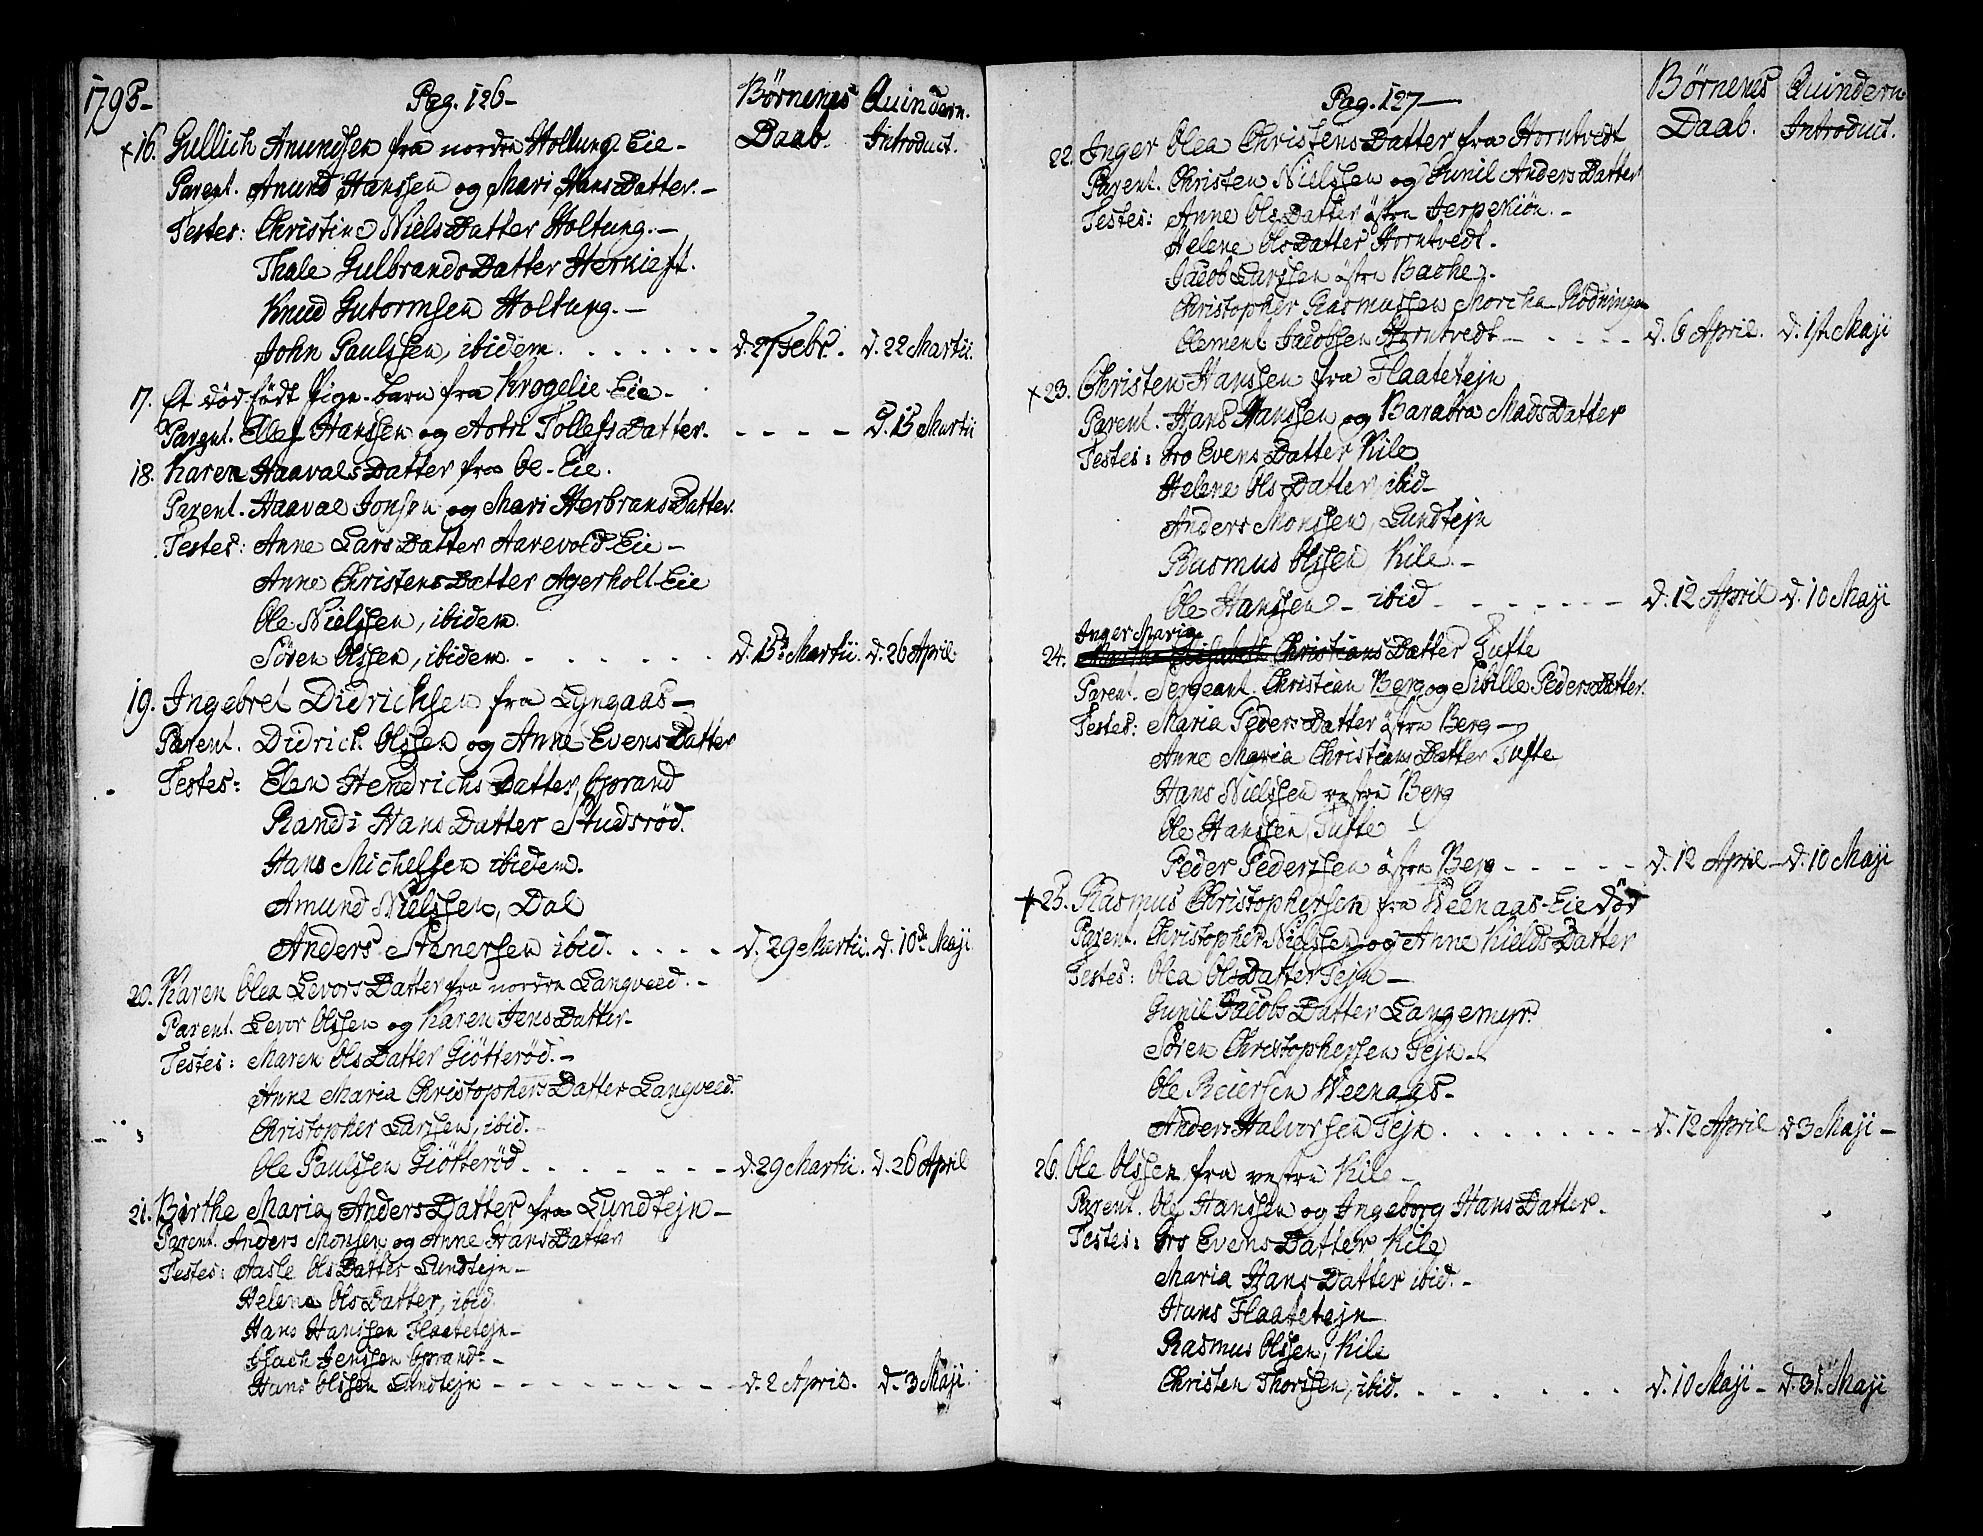 1795-
Pag. 126-
Børnenes Daab.
Quindern. Introduct.
+16. Gullich Amundsen fra nordre Holtung Eie-
Parent. Amund Hanssen og Mari HansDatter.-
Testes: Christine NielsDatter Holtung.-
Thale GulbrandsDatter Herkieft.
Knud Gutormsen Holtung.-
John Paulssen, ibidem. . . . . . . d. 27 Febr. d. 22 Martii.
17. Et död född Pige-barn fra Krogelie Eie-
Parent. Ellef Hanssen og TollefsDatter. - - - - d. 15 Martii
18. Karen HaavalsDatter fra Oe-Eie.
Parent. Haaval Jonsen og Mari HerbransDatter.
Testes: Anne LarsDatter Aarevold Eie-
Anne ChristensDatter Agerholt Eie
Ole Nielssen, ibidem.
Sören Olssen, ibidem. . . . . . . d. 15de Martii. d. 26 April.
19. Ingebret Didrichsen fra Lyngaas-
Parent. Didrich Olssen og Anne EvensDatter
Testes: Elen Hendrichs Datter, Oprand
Randi HansDatter Studsröd.
Hans Michelsen ibidem.
Amund Nielssen, Dal
Anders Stenersen ibid. . . . . d. 29 Martii. d. 10de Maji
20. Karen Olea LevorsDatter fra nordre Langveed.-
Parent. Levor Olssen og Karen JensDatter-
Testes: Maren OlsDatter Giötteröd.-
Anne Maria ChristophersDatter Langveed.
Christopher Larssen, ibid.-
Ole Paulssen Giötteröd. . . . . . . - d. 29 Martii. d. 26 April
21. Birthe Maria AndersDatter fra Lundtejn-
Parent. Anders Monsen og Anne HansDatter
Testes: Aasle OlsDatter Lundtejn-
Helene OlsDatter, ibid.
Hans Hanssen Flaatetejn-
Isach Jenssen Oprand.-
Hans Olssen Lundtejn - - - - - - - - d. 2 April. d. 3 Maji.
Pag. 127-
Børnenes Daab.
Quindern Introduct.
22. Inger Olea ChristensDatter fra Horntvedt
Parent. Christen Nielssen og Gunil AndersDatter
Testes: Anne OlsDatter östre Jerpekiön.-
Helene OlsDatter Horntvedt.
Jacob Larssen östre Bache.
Christopher Rasmussen Morcha-Rödningen
Clement Jacobsen Horntvedt - . . . . - d. 6 April. d. 1st. Maji
+23. Christen Hanssen fra Flaatetejn
Parent. Hans Hanssen og Barabra MadsDatter
Testes: Gro EvensDatter Kile
Helene OlsDatter, ibid-
Anders Monssen, Lundtejn
Rasmus Olssen Kile.-
Ole Hanssen - ibid. . . . . . . - d. 12 April d. 10 Maji
Inger Maria
24. ChristiansDatter Tufte
Parent. Sergeant. Christian Berg og Sibille PedersDatter.
Testes: Maria PedersDatter östre Berg-
Anne Maria ChristiansDatter Tufte
Hans Nielssen vestre Berg
Ole Hanssen Tufte
Peder Pederssen östre Berg - . . . . - d. 12 April - d. 10 Maji
+25. Rasmus Christophersen fra Weenaas-Eie död
Parent. Christopher Nielssen og Anne KieldsDatter
Testes: Olea OlsDatter Tejn-
Gunil JacobsDatter Langemyr.
Sören Christophersen Tejn-
Ole Reiersen Weenaas-
Anders Halvorsen Tejn . . . . . . . . - d. 12 April d. 3 Maji-
26. Ole Olssen fra vestre Kile-
Parent. Ole Hanssen og Ingeborg HansDatter.
Testes: Gro EvensDatter Kile
Maria HansDatter ibid.-
Hans Flaatetejn
Rasmus Olssen, Kile
Christen Thorssen, ibid. . . . . . . . d. 10 Maji- d. 31. Maji